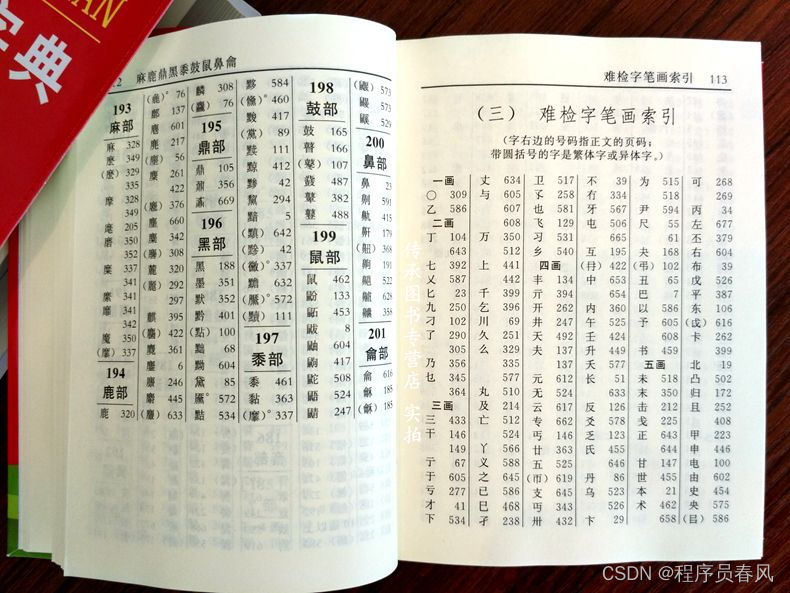 典
麻鹿鼎黑黍鼓鼠鼻龠
193
麻部
麻 328
349
(麽) 329
335
摩 328
349
麾 205
磨 350
糜 337
341
342
(靡) 337
194
鹿部
鹿 320
(麤) 76
137
麂
217
(麤) 56
261
422
(麁) 376
麈 660
麋 342
麓 320
(麗) 292
297
麒 395
422
麂 361
6
麝 246
445
(塵) 633
麟 308
(麤) 76
195
鼎部
鼎 105
鼐 356
鼒 669
196
黑部
黑 188
墨 351
默 352
黔 401
(點) 100
黜 68
黝 604
黛 85
572
黠 534
黟 584
(儵) 460
黢 417
(黨) 89
黩 111
黥 412
黪 42
黧 294
黯 5
(黰) 642
(黲) 42
(黴) 337
黵 632
(黶) 572
(黷) 111
197
黍部
黍 461
黏 363
(糜) 337
198
鼓部
鼓 165
瞽 166
(鼕) 107
鼗 487
鼙 382
鼟 488
199
鼠部
鼠 462
鼢 133
鼫 453
鼥 8
鼬 604
鼩 417
鼧 508
鼯 524
鼱 247
(鼴) 573
鼹 573
鼷 529
200
鼻部
鼻 23
劓 591
鼽 415
鼾 179
(齁) 368
齁 191
齄 628
201
龠部
龠 616
(龢) 185
(龢) 185
难检字笔画索引 113
(三) 难检字笔画索引
(字右边的号码指正文的页码;
带圆括号的字是繁体字或异体字。)
一画
〇 309
乙 586
二画
丁 104
643
七 392
乂 587
匕 23
九 250
刁 102
了 290
305
乃 356
乜 345
364
三画
三 433
干 146
149
亍 67
于 605
亏 277
才 41
下 534
丈 634
与 605
607
608
万 350
512
上 441
442
千 399
乞 396
川 69
久 251
么 329
335
577
丸 510
及 214
亡 512
524
丫 566
义 588
之 645
已 586
巳 468
孑 238
卫 517
孓 258
也 581
飞 129
习 531
乡 540
四画
丰 134
亓 394
开 262
井 247
天 492
夫 137
元 612
无 524
云 617
专 662
丐 146
廿 363
五 526
(帀) 619
支 645
丏 343
卅 432
不 39
有 334
牙 567
电 506
互 195
(冄) 422
中 653
内 360
午 525
壬 424
升 449
夭 577
长 51
反 126
爻 578
乏 123
氏 455
丹 86
乌 523
526
卞 29
为 515
518
尹 594
尺 55
61
夬 168
(弔) 102
丑 65
巴 7
以 586
予 605
608
书 459
五画
未 518
末 350
击 212
戋 225
正 643
644
甘 147
世 455
本 21
术 462
658
可 268
269
丙 34
左 677
丕 379
右 604
布 39
戊 526
平 387
东 106
(戉) 616
卡 262
399
北 19
凸 502
归 172
且 252
408
甲 223
申 446
电 100
由 602
史 454
央 575
(㠯) 586
传承图书专营店 实拍
CSDN @程序员春风